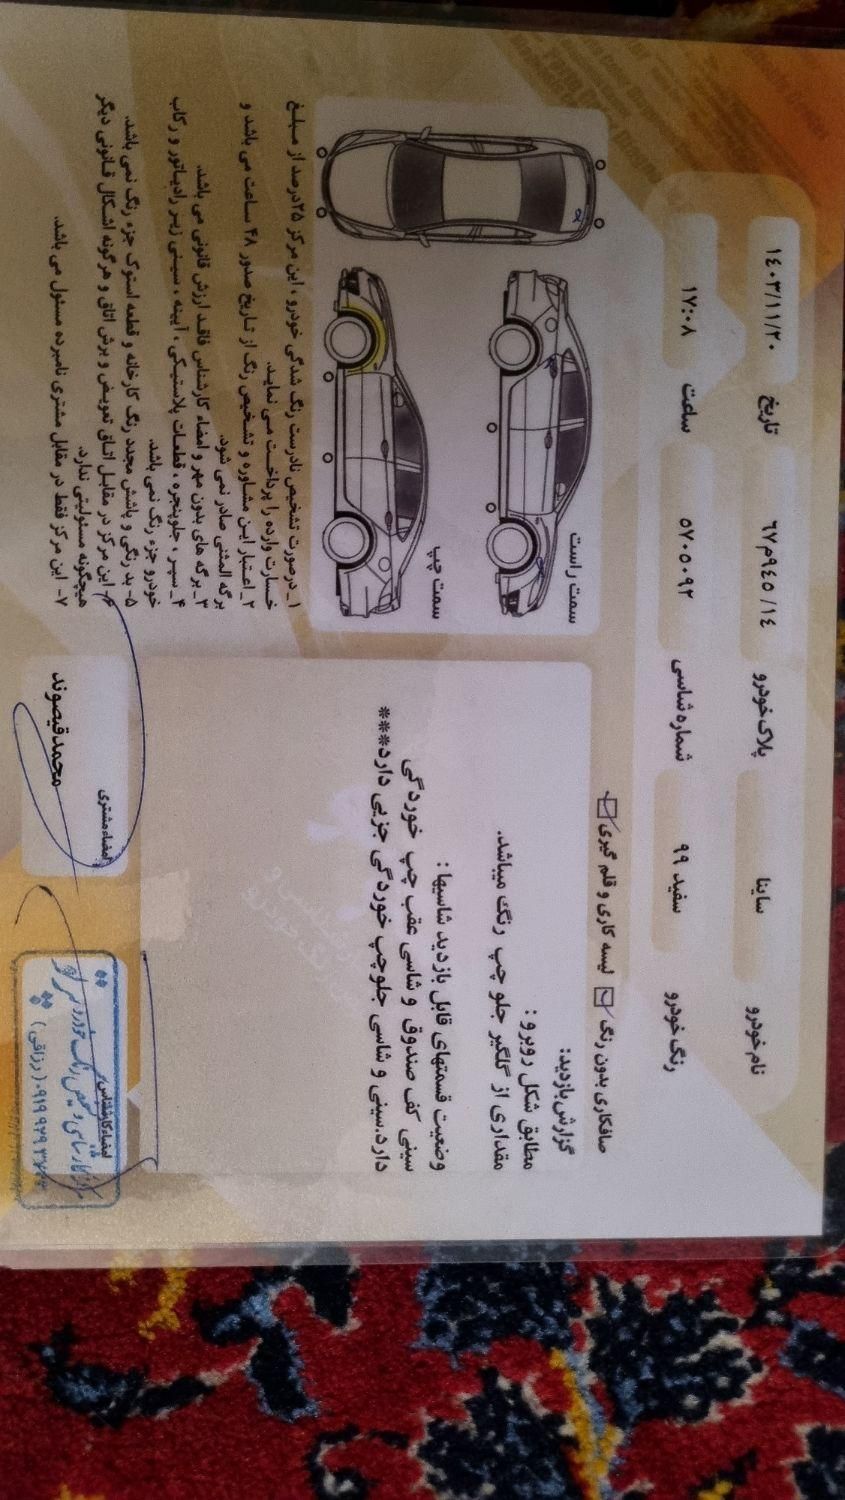 نام خودرو ساینا پلاک خودرو ۱۴/ ۹۴۵م۶۷ تاریخ ۱۴۰۳/۱۱/۲۰
رنگ خودرو سفید ۹۹ شماره شاسی ۵۷۰۵۰۹۲ ساعت ۱۷:۰۸
صافکاری بدون رنگ لیسه کاری و قلم گیری
گزارش بازدید:
مطابق شکل روبرو :
مقداری از گلگیر جلو چپ رنگ میباشد.
وضعیت قسمتهای قابل بازدید شاسیها :
سینی کف صندوق و شاسی عقب چپ خوردگی
دارد.سینی و شاسی جلوچپ خوردگی جزیی دارد***
سمت راست
سمت چپ
۱_ درصورت تشخیص نادرست رنگ شدگی خودرو ، این مرکز ۲۵درصد از مبلغ
خسارت وارده را پرداخت می نماید.
۲_ اعتبار این مشاوره و تشخیص رنگ از تاریخ صدور ۴۸ ساعت می باشد و
برگه المثنی صادر نمی شود.
۳_ برگه های بدون مهر و امضاء کارشناس فاقد ارزش قانونی می باشد.
۴_ سپر ، جلوپنجره ، قطعات پلاستیکی ، آیینه ، سینی زیر رادیاتور و رکاب
خودرو جزء رنگ نمی باشد.
۵- بد رنگی و پاشش مجدد رنگ کارخانه و قطعه استوک جزء رنگ نمی باشد.
۶- این مرکز در مقابل اتاق تعویض و برش اتاق و هرگونه اشکال قانونی دیگر
هیچگونه مسئولیتی ندارد.
۷- این مرکز فقط در مقابل مشتری نامبرده مسئول می باشد.
امضاء مشتری
محمدقیصوند
امضاء کارشناس